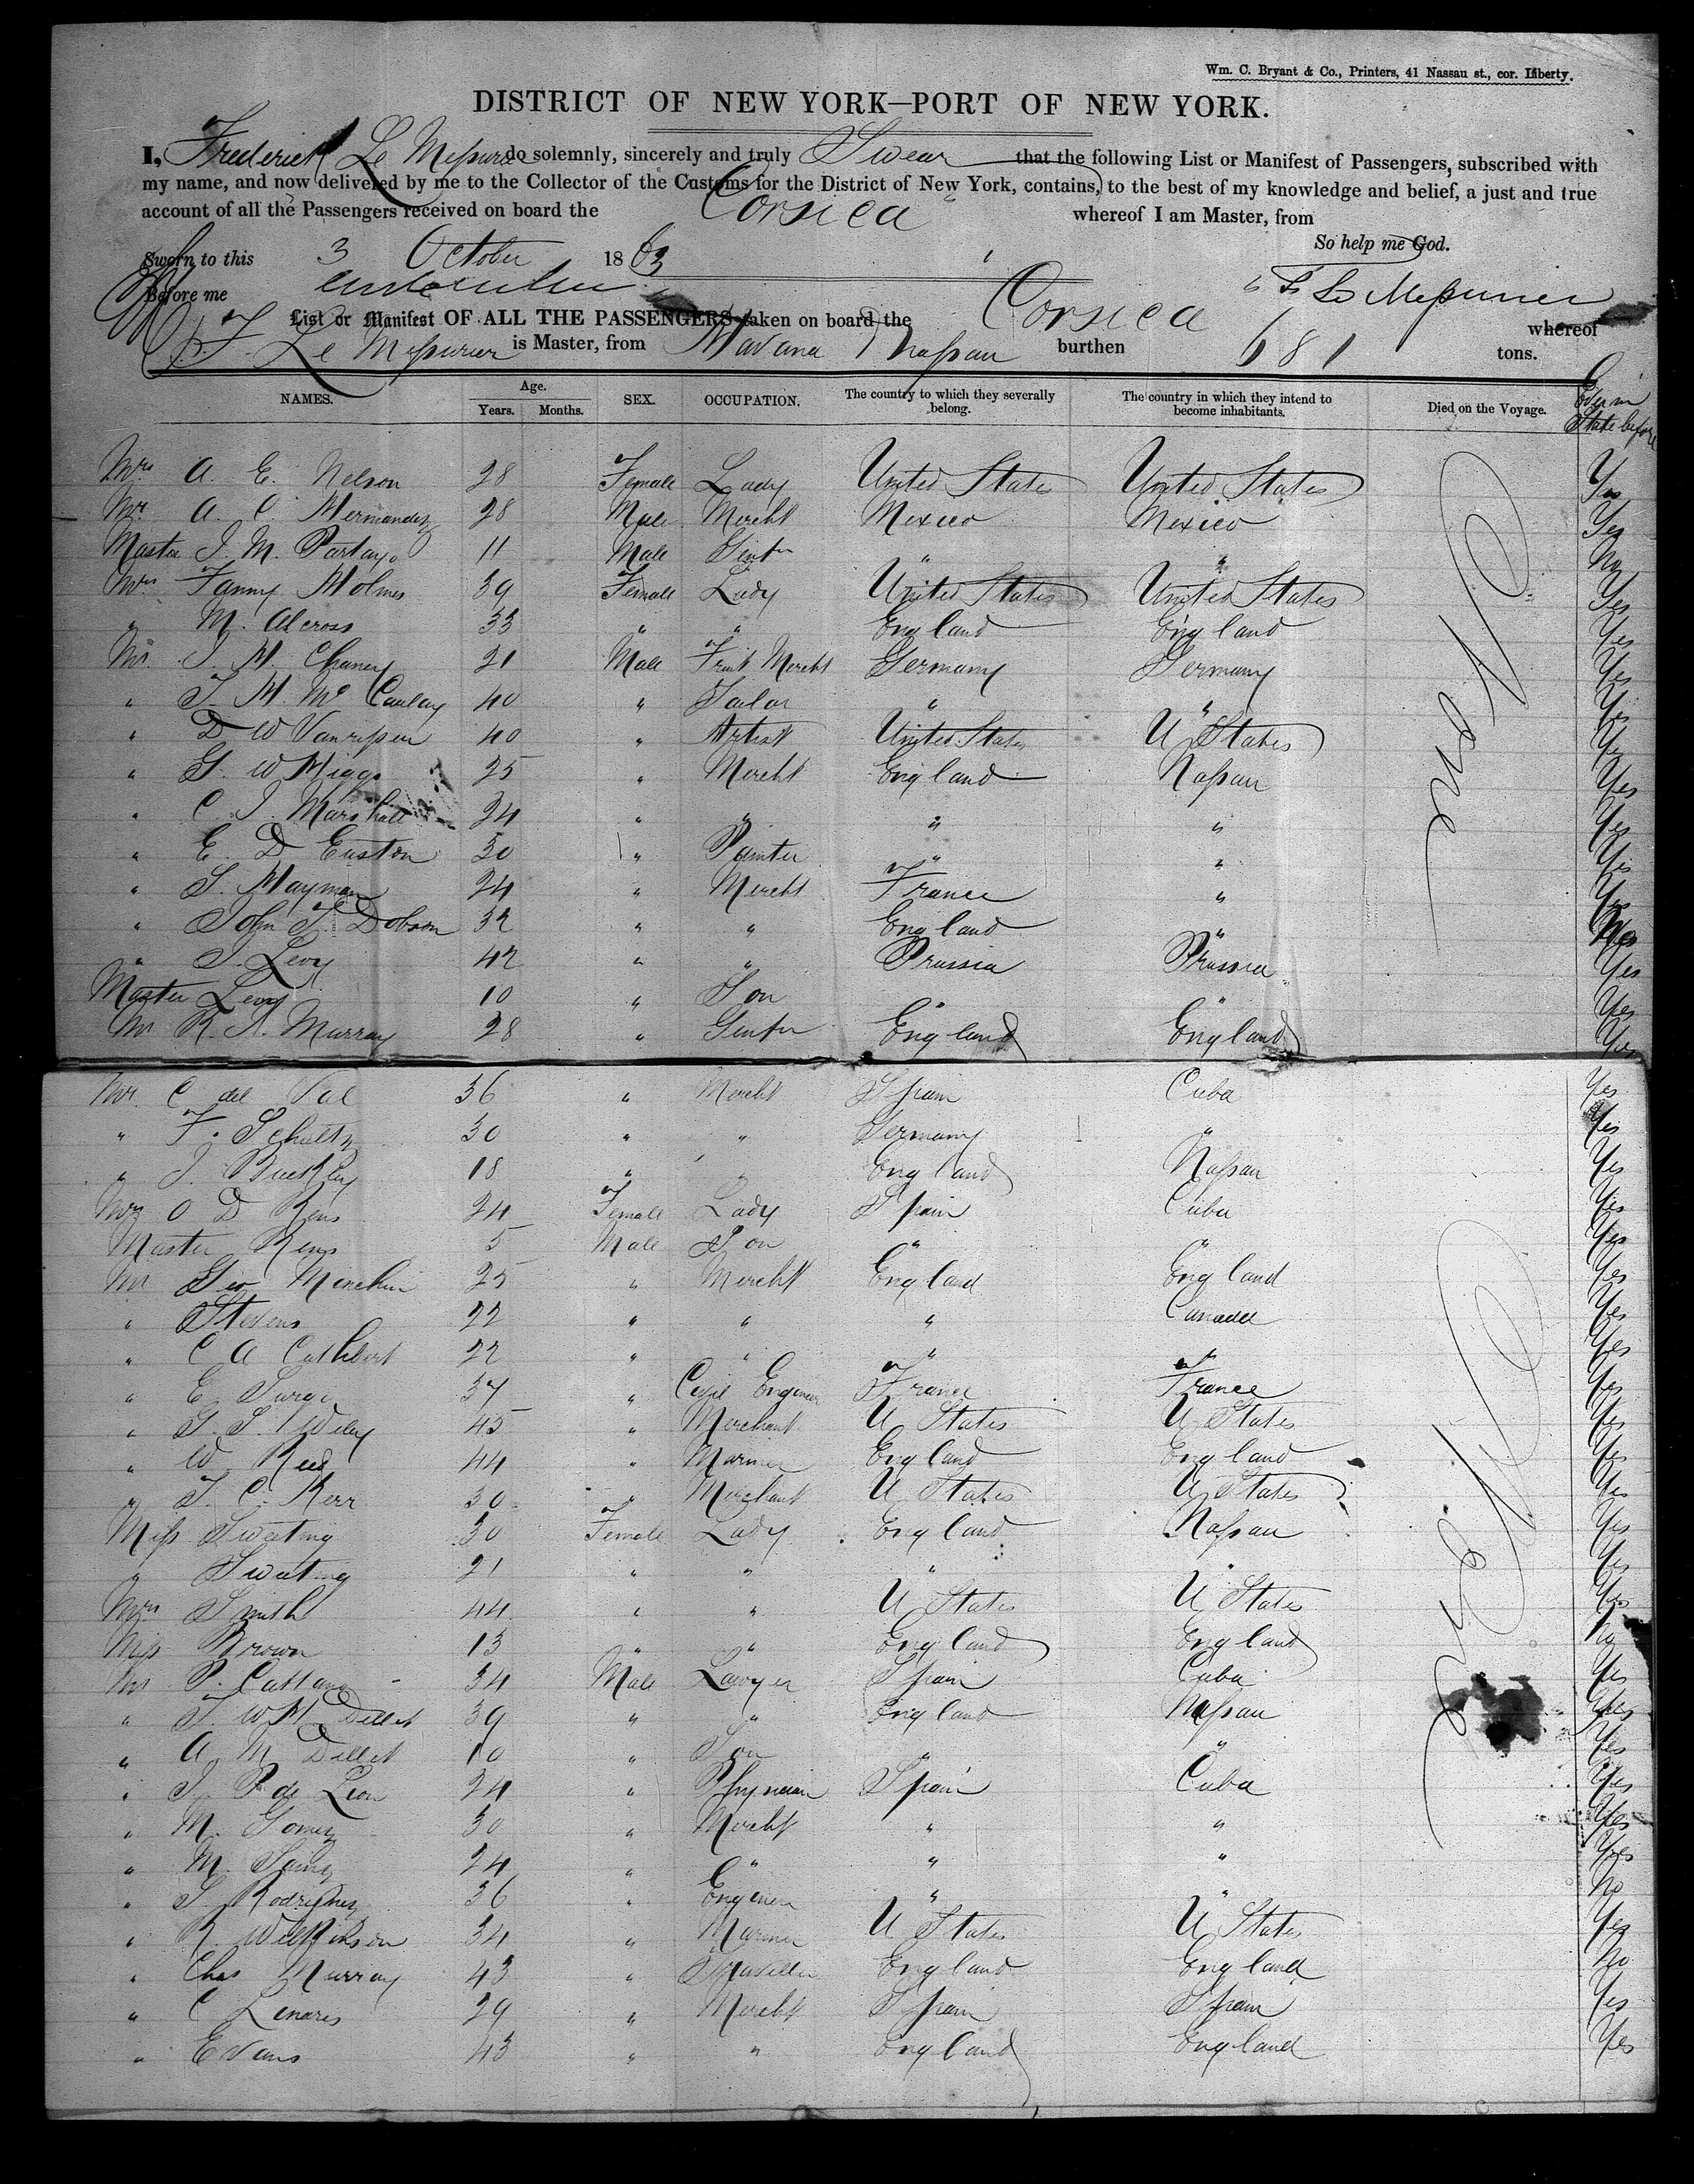 Wm. C. Bryant & Co., Printers, 41 Nassau st., cor. Liberty.
DISTRICT OF NEW YORK—PORT OF NEW YORK.
I, Frederick Le Mesurier do solemnly, sincerely and truly Swear that the following List or Manifest of Passengers, subscribed with
my name, and now delivered by me to the Collector of the Customs for the District of New York, contains, to the best of my knowledge and belief, a just and true
account of all the Passengers received on board the Corsica whereof I am Master, from
So help me God.
Sworn to this 3 October 1863
Before me F Le Mesurier
List or Manifest OF ALL THE PASSENGERS taken on board the Corsica whereof
F. Le Mesurier is Master, from Havana & Nassau burthen 681 tons.
NAMES. Age. Years. Months. SEX. OCCUPATION. The country to which they severally belong. The country in which they intend to become inhabitants. Died on the Voyage. Ever in State before
Mrs A. E. Nelson 28 Female Lady United States United States Yes
Mr. A. C. Hernandez 28 Male Mercht Mexico Mexico Yes
Master J. M. Partayo 11 Male Gentn " " No
Mrs Fanny Holmes 39 Female Lady United States United States Yes
" M. Alcross 33 " " England England Yes
Mr. J. H. Chaney 21 Male Fruit Mercht Germany Germany Yes
" J. H. Mc Caulay 40 " Sailor " " Yes
" D W Vanripen 40 " Artist United States U States Yes
" G. W Higgs 25 " Mercht England Nassau Yes
" C. J. Marshall 24 " " " " Yes
" E D Euston 30 " Painter " " Yes
" S. Hayman 24 " Mercht France " Yes
" John T. Dobson 32 " " England " No
" J. Levy 42 " " Prussia Prussia Yes
Master Levy 10 " Son " " Yes
Mr R. N. Murray 28 " Gentn England England Yes
Mr C del Val 36 " Mercht Spain Cuba Yes
" F. Schultz 30 " " Germany " Yes
" J. Buckley 18 " " England Nassau Yes
Mrs O D Rens 24 Female Lady Spain Cuba Yes
Master Rens 5 Male Son " " Yes
Mr Geo Minchin 25 " Mercht England England Yes
" Stevens 22 " " " Canada Yes
" C A Cuthbert 22 " " " " Yes
" E 37 " Civil Engineer France France Yes
" S. S. Wiley 45 " Merchant U States U States Yes
" W Reed 44 " Mariner England England Yes
" T. C. Kerr 30 " Merchant U States U States Yes
Miss Sweeting 30 Female Lady England Nassau Yes
" Sweeting 21 " " " " Yes
Mrs Smith 44 " " U States U States Yes
Miss Brown 13 " " England England No
Mr P. 34 Male Lawyer Spain Cuba Yes
" T. W H Dillet 39 " " England Nassau Yes
" A M Dillet 10 " Son " " Yes
" J P de Leon 24 " Physician Spain Cuba Yes
" M. Gomez 30 " Mercht " " Yes
" M. Sainz 24 " " " " Yes
" S Rodriguez 36 " Engineer " " No
" R. Wilkinson 34 " Mariner U States U States Yes
" Chas Murray 43 " Traveller England England No
" C Lenares 29 " Mercht Spain Spain Yes
" Evans 43 " " England England Yes